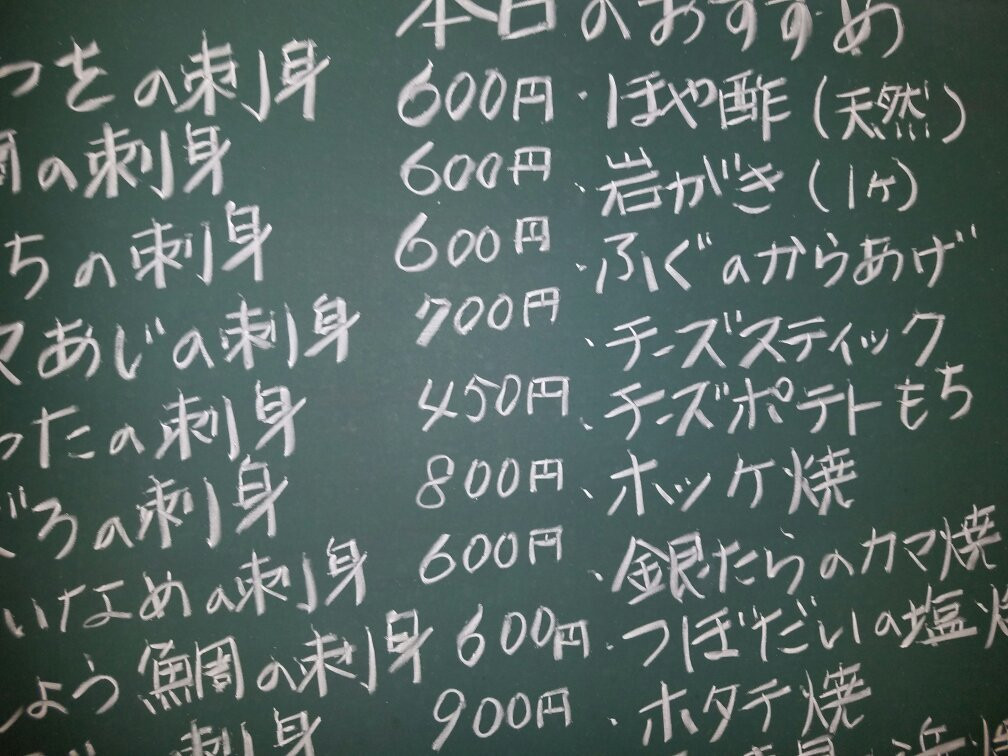 本日のおすすめ
つをの刺身 600円
の刺身 600円
ちの刺身 600円
マあじの刺身 700円
ったの刺身 450円
ろの刺身 800円
いなめの刺身 600円
しょう鯛の刺身 600円
刺身 900円
・ほや酢(天然)
、岩がき(1ヶ)
・ふぐのからあげ
、チーズスティック
、チーズポテトもち
、ホッケ焼
、銀だらのカマ焼
・つぼだいの塩焼
、ホタテ焼